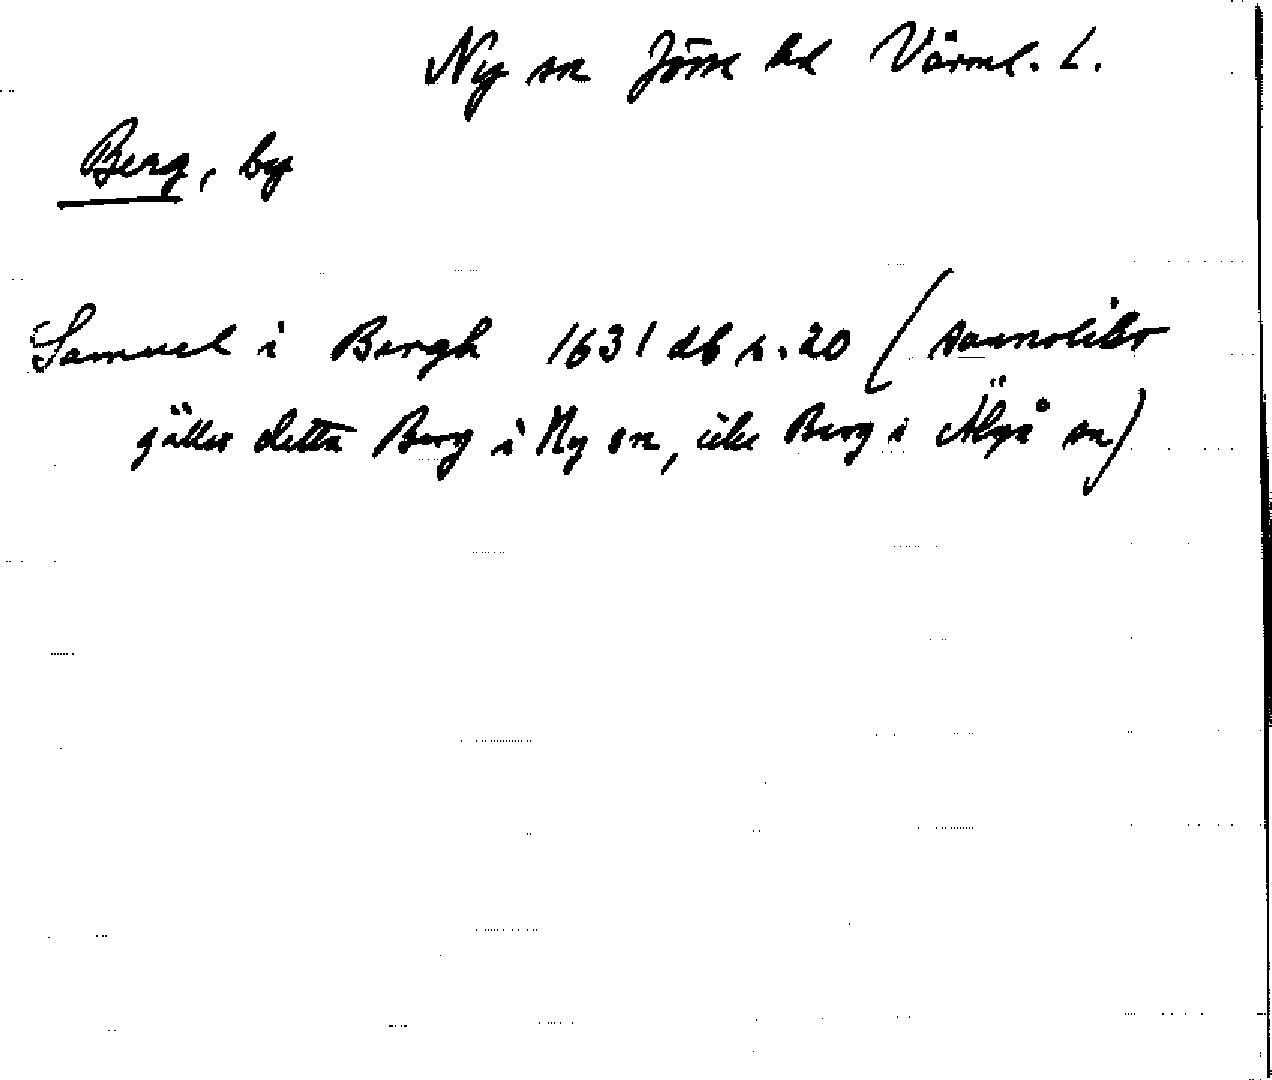 Ny sn Jösse hd Värml. L.
Berg, by
Samuel i Bergh 1631 db s. 20 (sannolikt
gäller detta Berg i Ny sn, icke Berg i Älgå sn)